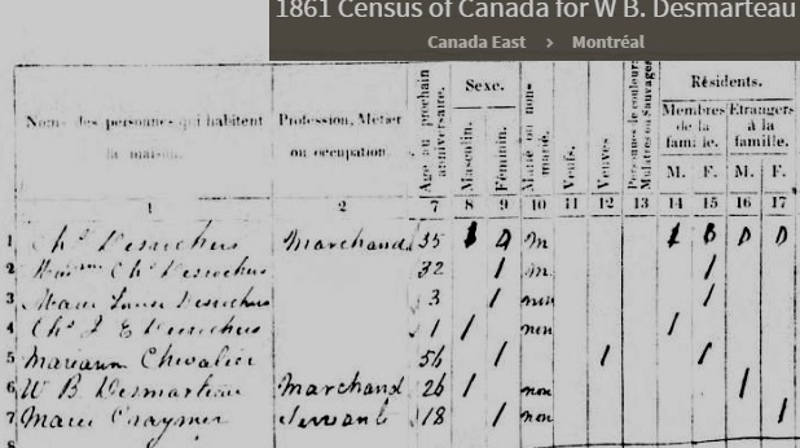 1861 Census of Canada for W B. Desmarteau
Canada East > Montréal
Noms des personnes qui habitent la maison.
Profession, Métier ou occupation
Age au prochain anniversaire.
Sexe.
Masculin.
Féminin.
Marié ou non-marié.
Veufs.
Veuves
Personnes de couleur, Mulatres ou Sauvages
Résidents.
Membres de la famille.
Etrangers à la famille.
M. F. M. F.
1 2 7 8 9 10 11 12 13 14 15 16 17
1 Chs Desrochers Marchand 35 M
2 Chs Desrochers 32 1 m 1
3 Marie Louise Desrochers 3 1 non 1
4 Chs J E Desrochers 1 1 non 1
5 Mariann Chevalier 56 1 1 1
6 W B Desmarteau Marchand 26 1 non 1
7 Marie Craymer Servante 18 1 non 1
8